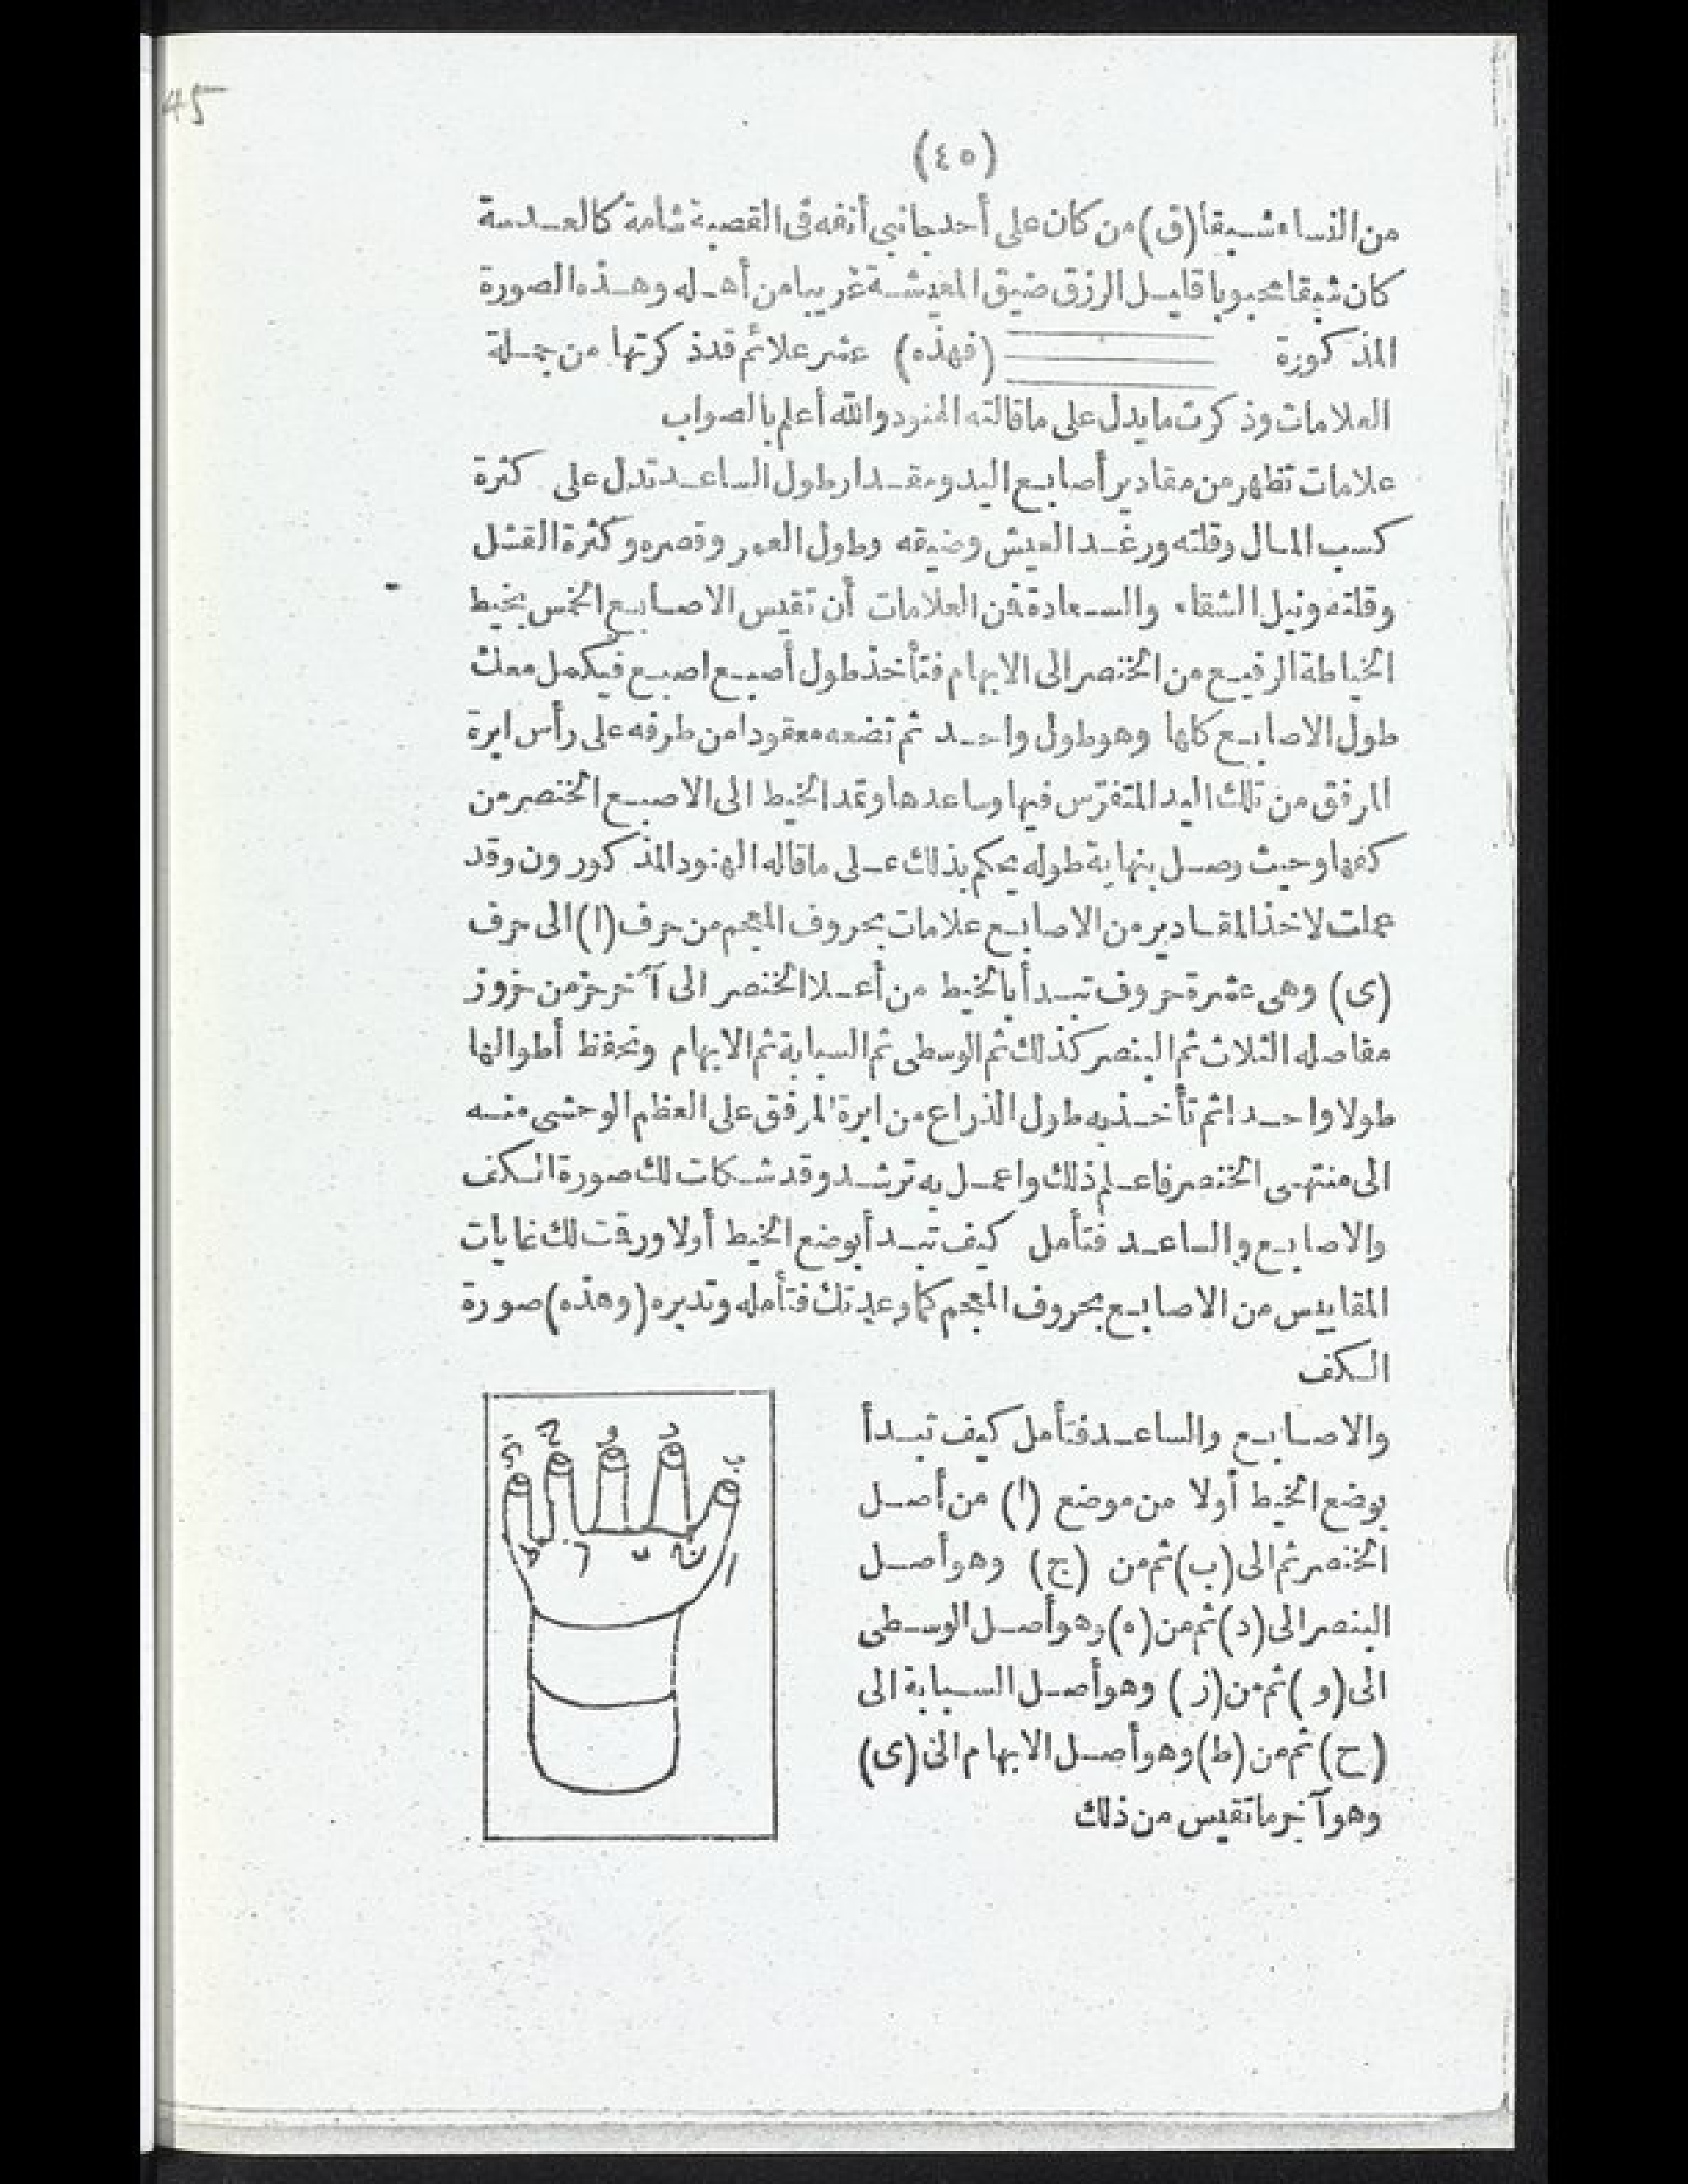 45
(٤٥)
من النساء شبقا (ق) من كان على أحد جانبي أنفه فى القصبة شامة كالعدسة
كان شبقا محبوبا قليل الرزق ضيق المعيشة غريبا من أهله وهذه الصورة
المذكورة (فهذه) عشر علائم قد ذكرتها من جملة
العلامات وذكرت ما يدل على ما قالته الهنود والله أعلم بالصواب
علامات تظهر من مقادير أصابع اليد ومقدار طول الساعد تدل على كثرة
كسب المال وقلته ورغد العيش وضيقه وطول العمر وقصره وكثرة الفشل
وقلته ونيل الشقاء والسعادة فن العلامات أن تقيس الاصابع الخمس بخيط
الخياطة الرفيع من الخنصر الى الابهام فتأخذ طول أصبع اصبع فيكمل معك
طول الاصابع كلها وهو طول واحد ثم تضعه معقودا من طرفه على رأس ابرة
المرفق من تلك اليد المتفرس فيها وساعدها وتمد الخيط الى الاصبع الخنصر من
كفها وحيث وصل بنهاية طوله يحكم بذلك على ما قاله الهنود المذكورون وقد
عملت لاخذ المقادير من الاصابع علامات بحروف المعجم من حرف (ا) الى حرف
(ى) وهى عشرة حروف تبدأ بالخيط من أعلا الخنصر الى آخر حز من حزوز
مفاصله الثلاث ثم البنصر كذلك ثم الوسطى ثم السبابة ثم الابهام وتحفظ أطوالها
طولا واحدا ثم تأخذ به طول الذراع من ابرة المرفق على العظم الوحشى منه
الى منتهى الخنصر فاعلم ذلك واعمل به ترشد وقد شكلت لك صورة الكف
والاصابع والساعد فتأمل كيف تبدأ بوضع الخيط أولا ورقت لك غايات
المقاييس من الاصابع بحروف المعجم كما وعدتك فتأمله وتدبره (وهذه) صورة
الكف
والاصابع والساعد فتأمل كيف تبدأ
بوضع الخيط أولا من موضع (ا) من أصل
الخنصر ثم الى (ب) ثم من (ج) وهو أصل
البنصر الى (د) ثم من (ه) وهو أصل الوسطى
الى (و) ثم من (ز) وهو أصل السبابة الى
(ح) ثم من (ط) وهو أصل الابهام الى (ى)
وهو آخر ما تقيس من ذلك